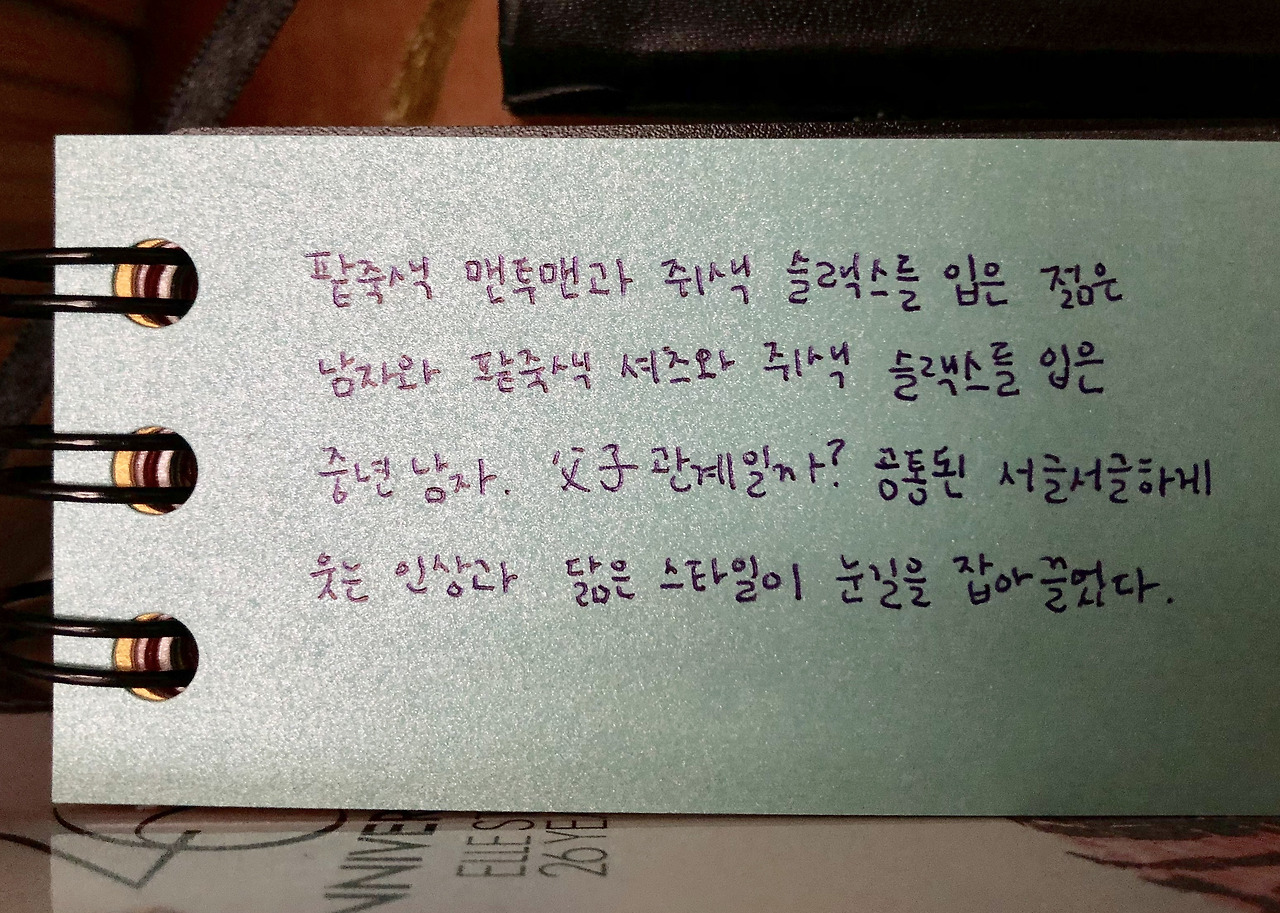 팥죽색 맨투맨과 쥐색 슬랙스를 입은 젊은
남자와 팥죽색 셔츠와 쥐색 슬랙스를 입은
중년 남자. 父子 관계일까? 공통된 서글서글하게
웃는 인상과 닮은 스타일이 눈길을 잡아끌었다.
NNIVER
ELLE S
26 YE